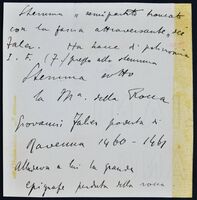 Stemma semipartito troncato
con la fascia attraversante, dei
Falier. Ha tracce di policromia
I. F. (?) presso allo stemma
Stemma sotto
la Ma. della Rocca
Giovanni Falier podestà di
Ravenna 1460-1461
Alludeva a lui la grande
epigrafe perduta della rocca